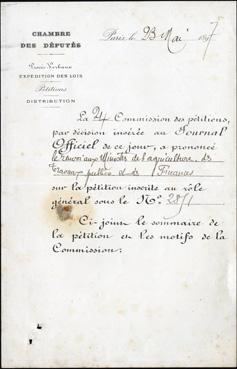 CHAMBRE
DES DÉPUTÉS
Procès-Verbaux
EXPÉDITION DES LOIS
Pétitions
DISTRIBUTION
Paris, le 23 Mai 1897
La 24 Commission des pétitions,
par décision insérée au Journal
Officiel de ce jour, a prononcé
le renvoi aux Ministres de l'agriculture, des
Travaux publics et des Finances
sur la pétition inscrite au rôle
général sous le No
Ci-joint le sommaire de
la pétition et les motifs de la
Commission: